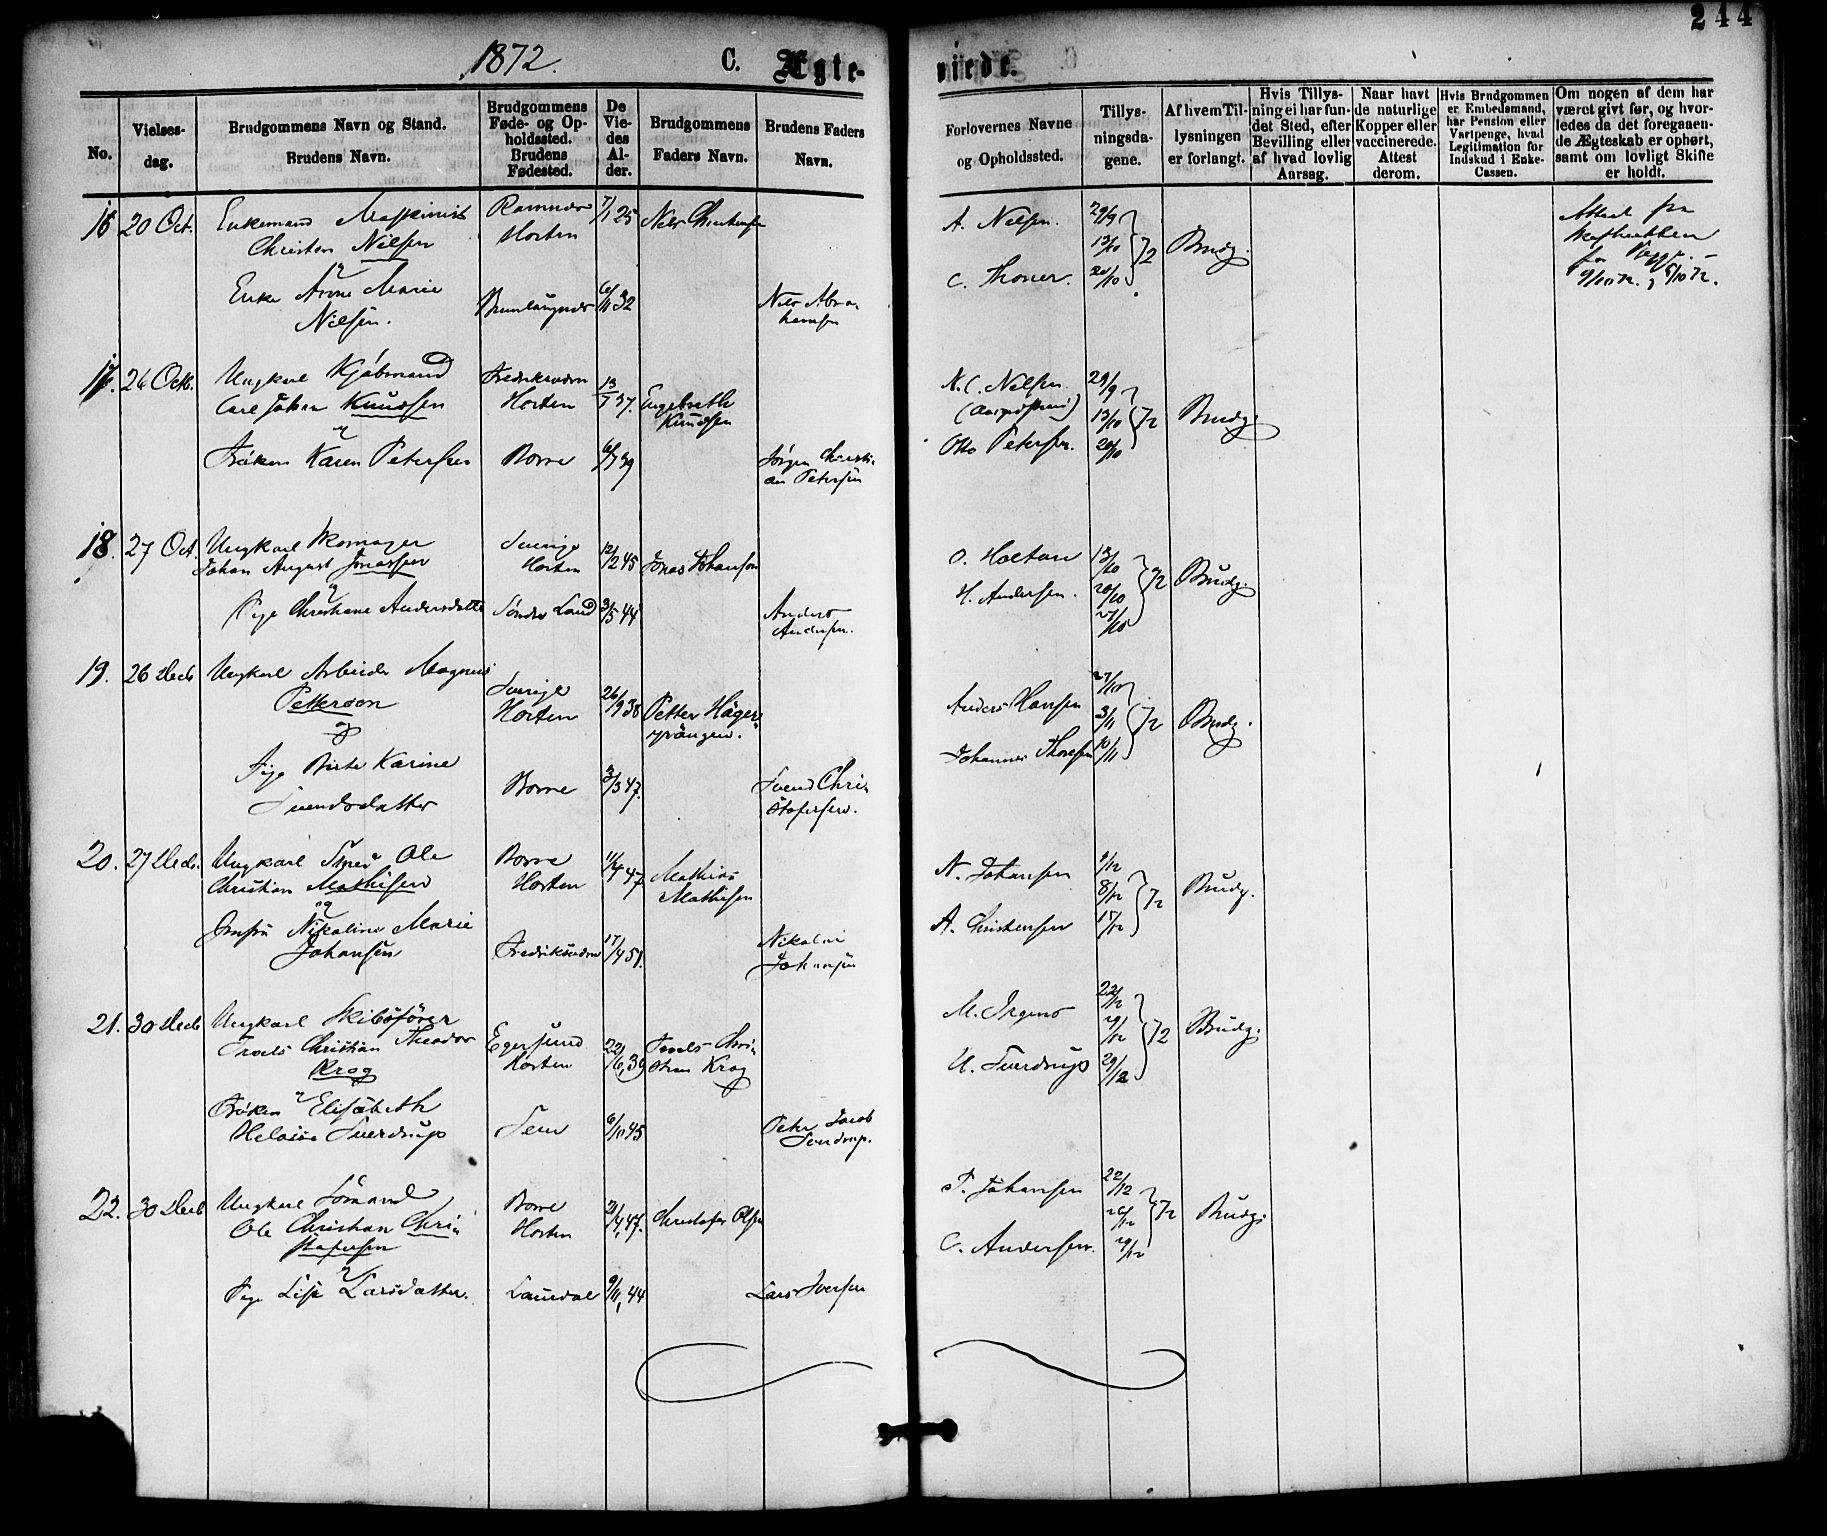 244
1872. C. Ægteviede.
No.
Vielsesdag.
Brudgommens Navn og Stand.
Brudens Navn.
Brudgommens
Føde- og Opholdssted.
Brudens
Fødested.
De
Viedes
Alder.
Brudgommens
Faders Navn.
Brudens Faders
Navn.
Forlovernes Navne
og Opholdssted.
Tillysningsdagene.
Af hvem Tillysningen
er forlangt.
Hvis Tillysning ei har fundet Sted, efter
Bevilling eller
af hvad lovlig
Aarsag.
Naar havt
de naturlige
Kopper eller
vaccinerede.
Attest
derom.
Hvis Brudgommen
er Embedsmand,
har Pension eller
Vartpenge, hvad
Legitimation for
Indskud i Enke-
Cassen.
Om nogen af dem har
været givt før, og hvorledes da det foregaaende Ægteskab er ophørt,
samt om lovligt Skifte
er holdt.
16 20 Oct. Enkemand Maskinist
Christen Nielsen
Ramnæs
Horten
7/1 25
A. Nielsen. 29/9
13/10
C. Thoner. 20/10
72 Brudg.
Attest fra
9/10 72, 5/10 72.
Enke Anne Marie
Nilsen.
Brunlaugnæs 6/11 32 Nils Abrahamsen
17. 26 Octb. Ungkarl Kjøbmand
Carl Johan Knudsen
Fredriksværn
Horten
13/7 37. Engebreth
Knudsen
N. C. Nielsen 29/9
13/10
Otto Petersen. 20/10
72 Brudg.
Frøken Karen Petersen Borre 6/7 39 Jørgen Christian Petersen
18. 27 Oct. Ungkarl Skomager
Johan August Jonassen
Sverige
Horten
12/2 45 Jonas Johanson
O. Holtan 13/10
H. Andersen. 20/10
27/10
72 Brudg.
Pige Christiane Andersdatter Søndre Land 3/5 44 Anders
Andersen.
19. 26 Decb Ungkarl Arbeider Magnus
Petterson
Sverige
Horten
26/9 38 Petter Häger
Anders Hansen 27/10
3/11
Johannes Thoresen 10/11
72 Brudg.
Pige Birte Karine
Svendsdatter
Borre 3/3 47. Svend Christofersen.
20. 27 Decb. Ungkarl Smed Ole
Christian Mathisen
Borre
Horten
11/4 47. Mathias
Mathisen
N. Johansen 1/12
8/12
A. Christensen 15/12
72 Brudg.
Jomfru Nikoline Marie
Johansen
Fredriksværn 17/4 51. Nikolai
Johansen
21. 30 Decb Ungkarl Skibsfører
Troels Christian Theodor
Krog
Egersund
Horten
22/6, 39 Troels Christian Krog
M. Irgens 22/12
26/12
U. Sverdrup 29/12
72 Brudg.
Frøken Elisabeth
Heloise Sverdrup
Sem 6/10 45 Peter Jacob
Sverdrup.
22. 30 Decb Ungkarl Sømand
Ole Christian Christofersen
Borre
Horten
2/4, 47. Christofer Olsen
P. Johansen 22/12
26/12
C. Andersen. 29/12
72 Brudg.
Pige Lise Larsdatter. Laurdal 9/11, 44 Lars Iversen